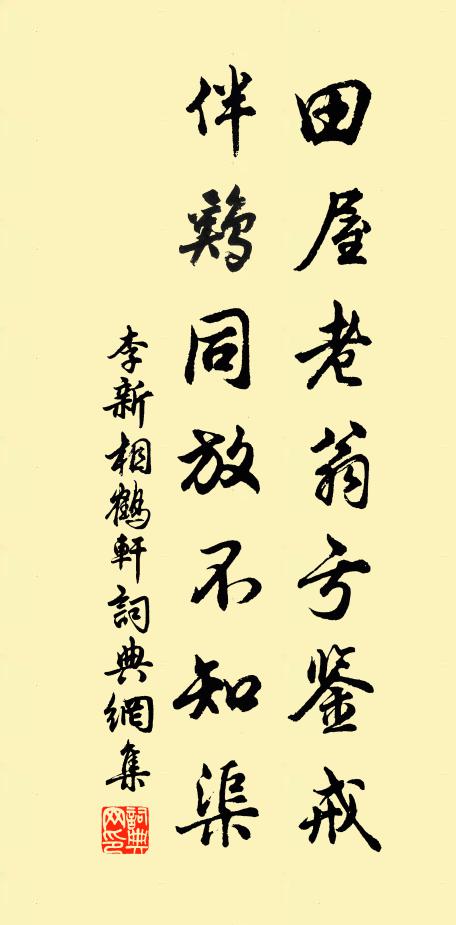 田屋老翁亏鉴戒
伴鸡同放不知渠
李新相鶴軒詞典網集
詞典网印